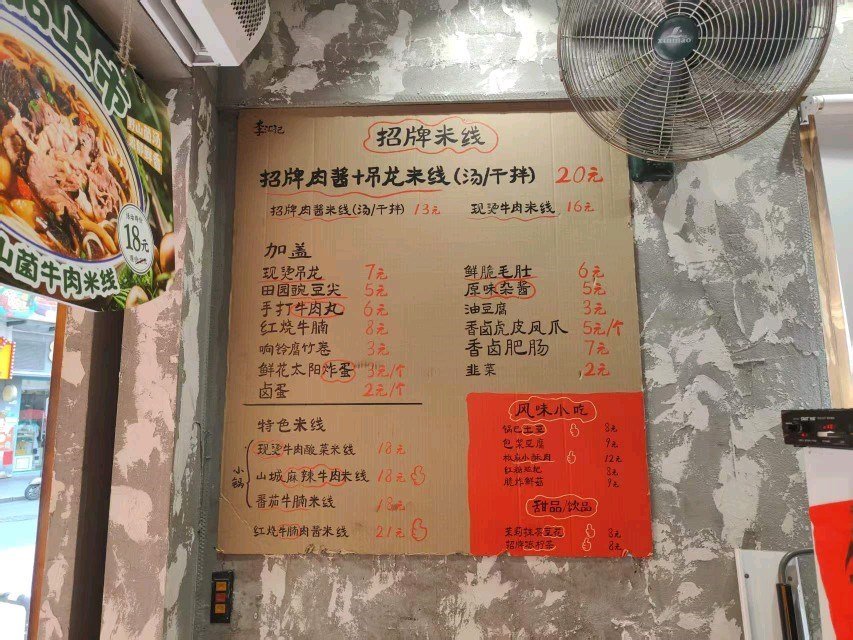 上市
18元
山菌牛肉米线
xinmao
招牌米线
招牌肉酱+吊龙米线(汤/干拌) 20元
招牌肉酱米线(汤/干拌) 13元 现烫牛肉米线 16元
加盖
现烫吊龙 7元
田园豌豆尖 5元
手打牛肉丸 6元
红烧牛腩 8元
响铃腐竹卷 3元
鲜花太阳炸蛋 3元/个
卤蛋 2元/个
鲜脆毛肚 6元
原味杂酱 5元
油豆腐 3元
香卤虎皮凤爪 5元/个
香卤肥肠 7元
韭菜 2元
特色米线
小锅
现烫牛肉酸菜米线 18元
山城麻辣牛肉米线 18元
番茄牛腩米线 18元
红烧牛腩肉酱米线 21元
风味小吃
锅巴土豆 8元
包浆豆腐 9元
椒麻小酥肉 12元
红糖糍粑 8元
脆炸鲜菇 9元
甜品/饮品
茉莉抹茶豆花 8元
8元